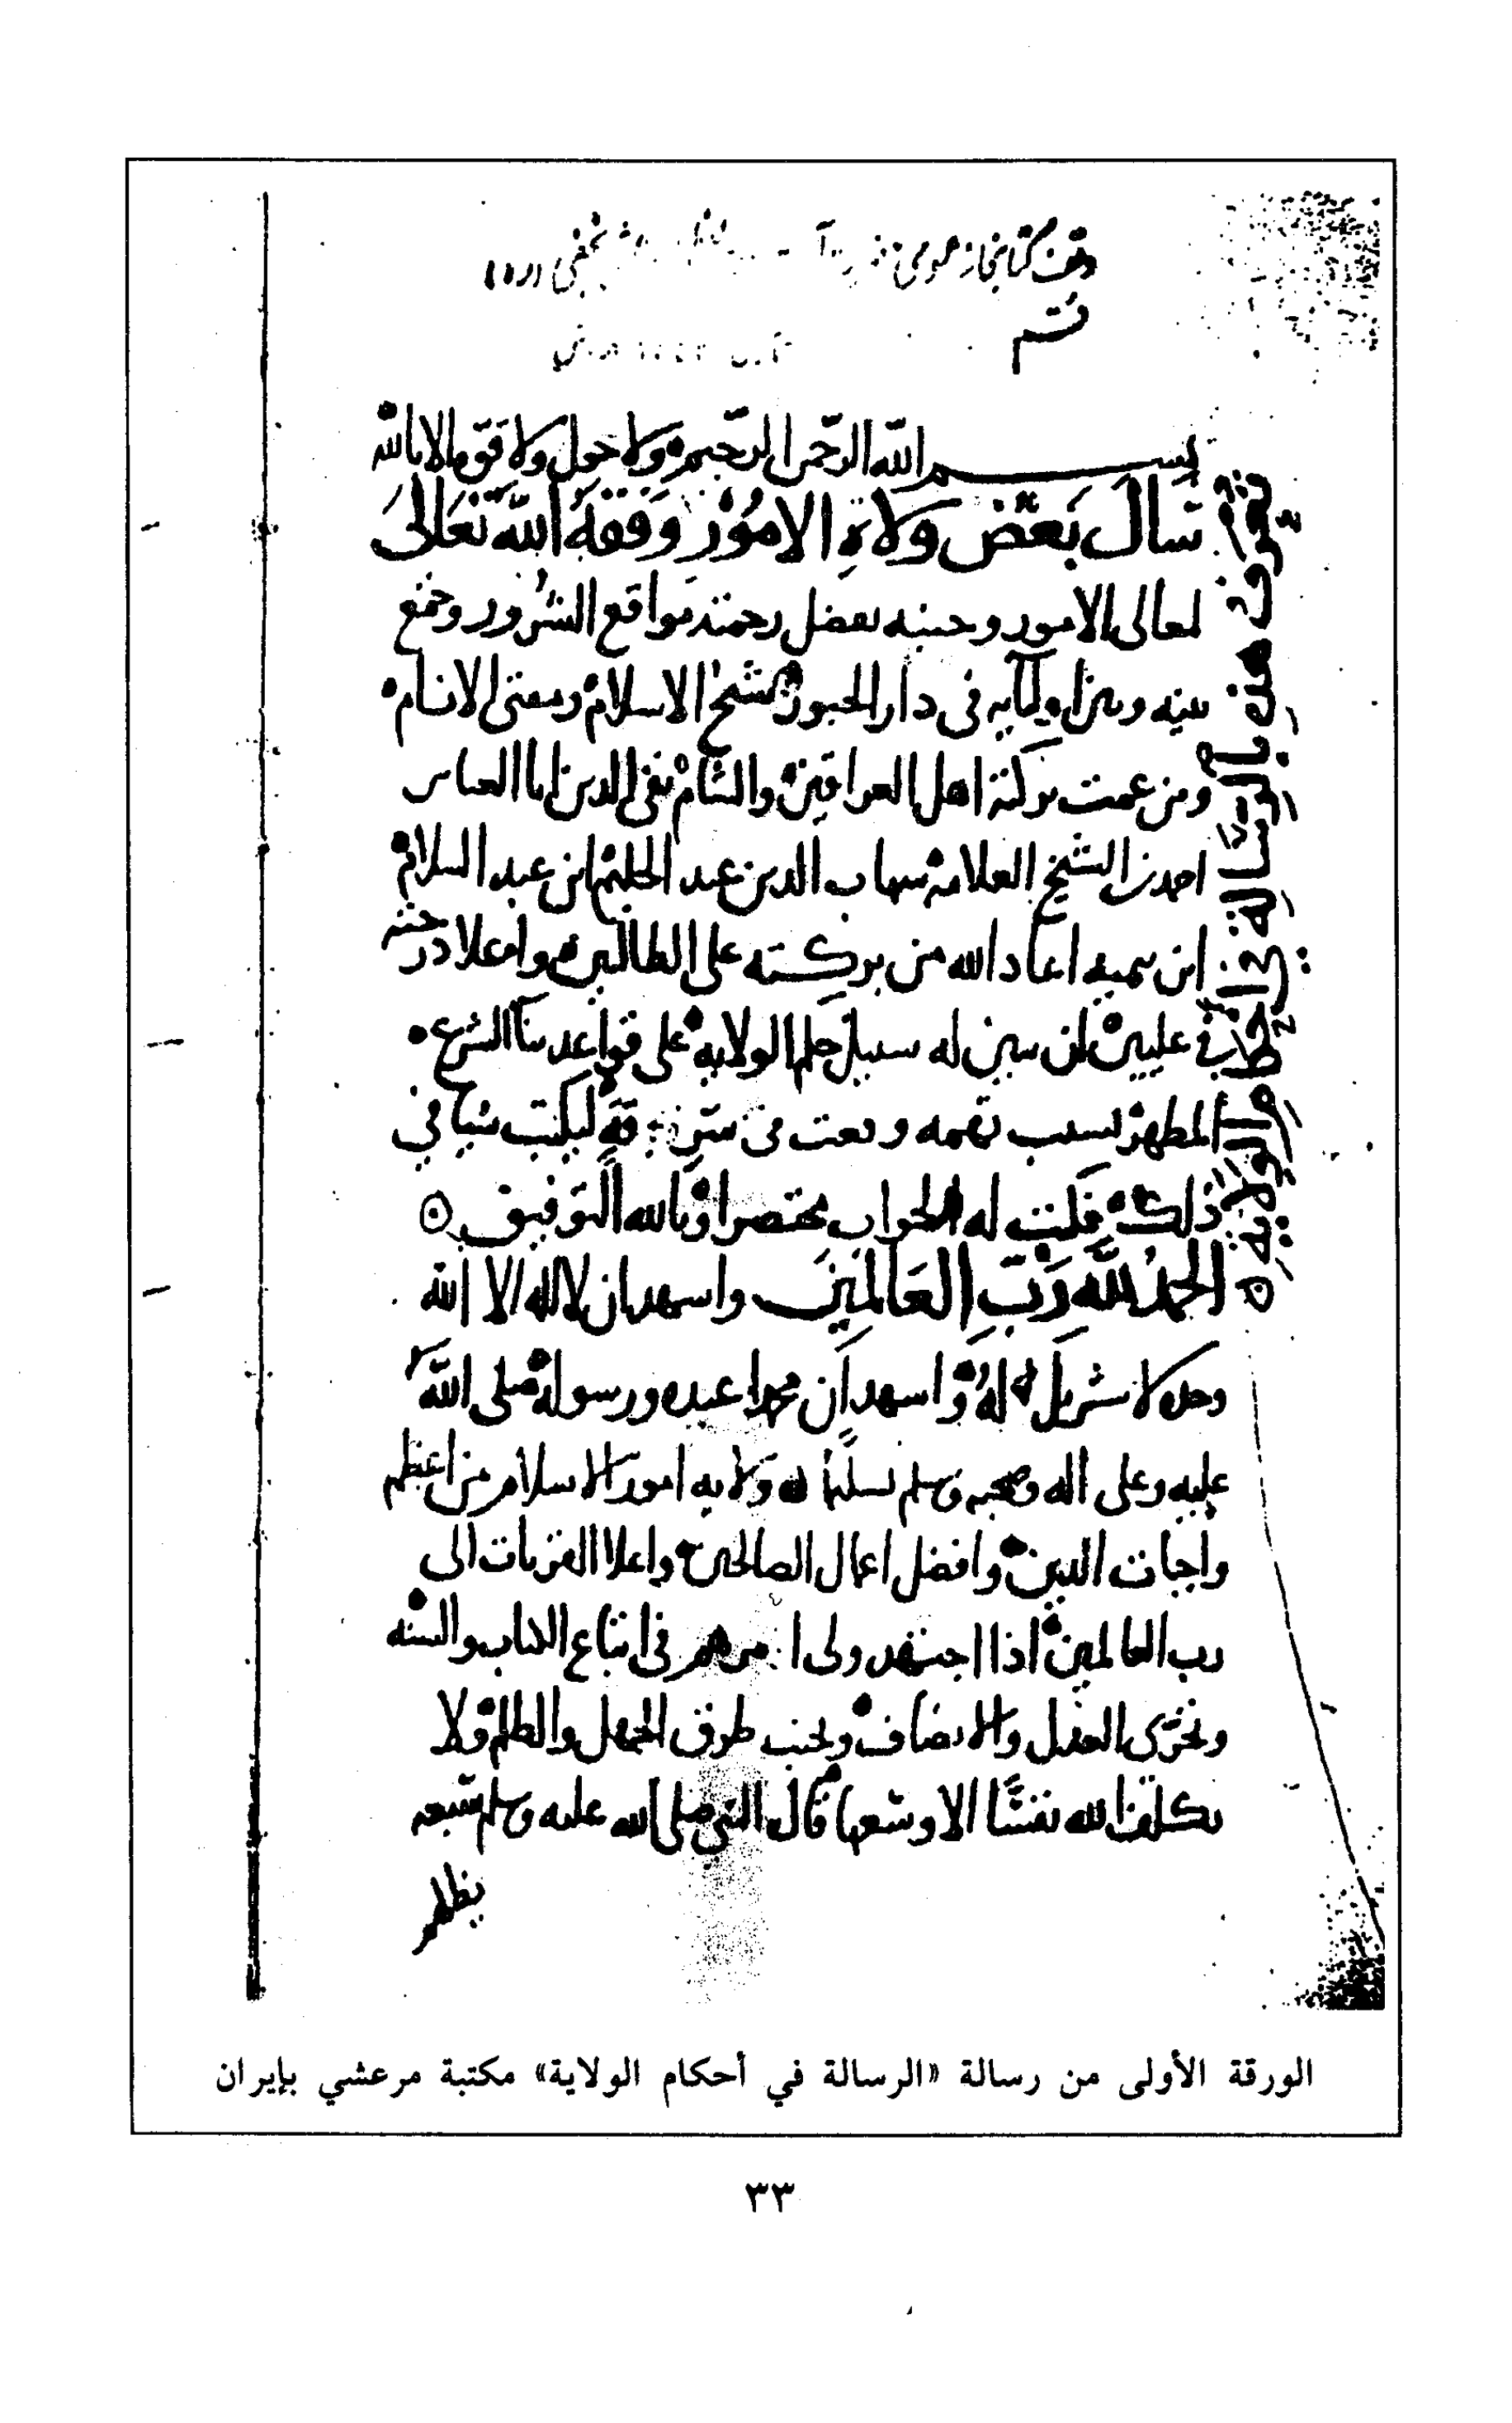 وقف كتابخانه عمومى
نجفى (ره)
قم
بسم الله الرحمن الرحيم ولا حول ولا قوة الا بالله
سال بعض ولاة الامور وفقه الله تعالى
لمعالى الامور وجنبه بفضل رحمته مواقع الشرور وجمع
بينه وبين اوليائه فى دار الحبور شيخ الاسلام ومفتى الانام
ومن عمت بركته اهل العراقين والشام تقى الدين ابا العباس
احمد بن الشيخ العلامة شهاب الدين عبد الحليم ابن عبد السلام
ابن تيميه اعاد الله من بركته على الطالبين واعلا درجته
فى عليين ان يبين له سبيل حلم الولايه على قواعد بنا الشرع
المطهر بسبب تهمه وقعت فى سرقة ليكتب شيا في
ذلك فكتب له الجواب مختصرا وبالله التوفيق
الحمد لله رب العالمين واشهد ان لا اله الا الله
وحده لا شريك له واشهد ان محمدا عبده ورسوله صلى الله
عليه وعلى اله وصحبه وسلم تسليما ولايه امور الاسلام من اعظم
واجبات الدين وافضل اعمال الصالحين واعلا القربات الى
رب العالمين اذا اجتهد ولى امرهم فى اتباع الكتاب والسنه
وتحرى العدل والانصاف وتجنب طرق الجهل والظلم ولا
يكلف الله نفسا الا وسعها قال النبي صلى الله عليه وسلم سبعه
يظلهم
تعرف هذه بالرسالة في احكام الولاية
الورقة الأولى من رسالة «الرسالة في أحكام الولاية» مكتبة مرعشي بإيران
٣٣